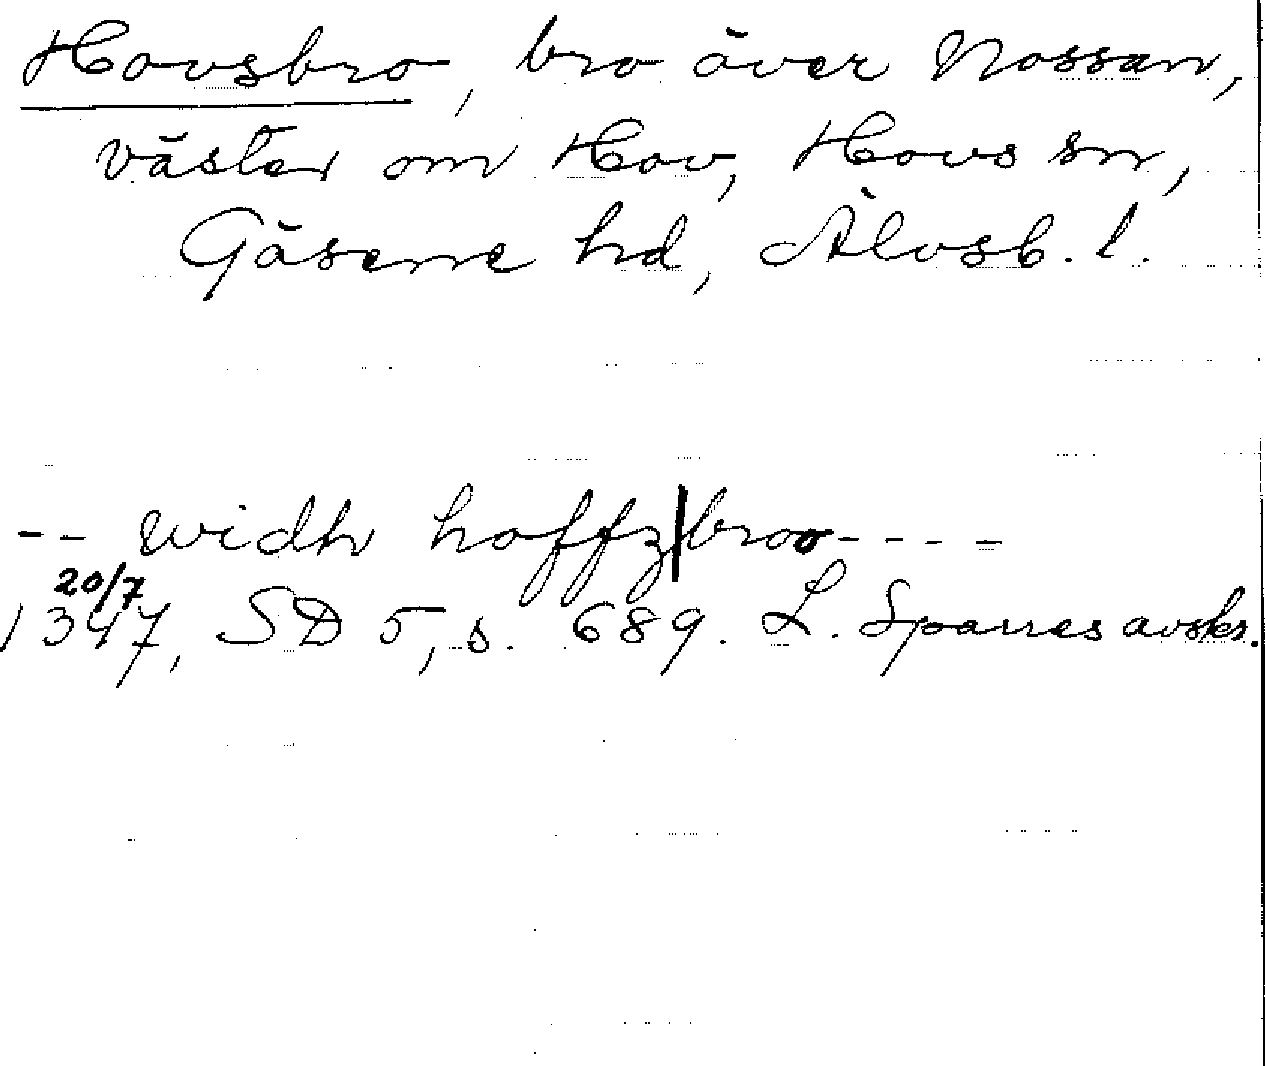 Hovsbro, bro över Nossan,
väster om Hov, Hovs sn,
Gäsene hd, Älvsb. l.
-- widh hoffz|broo----
20/7
1347, SD 5, s. 689. L. Sparres avskr.